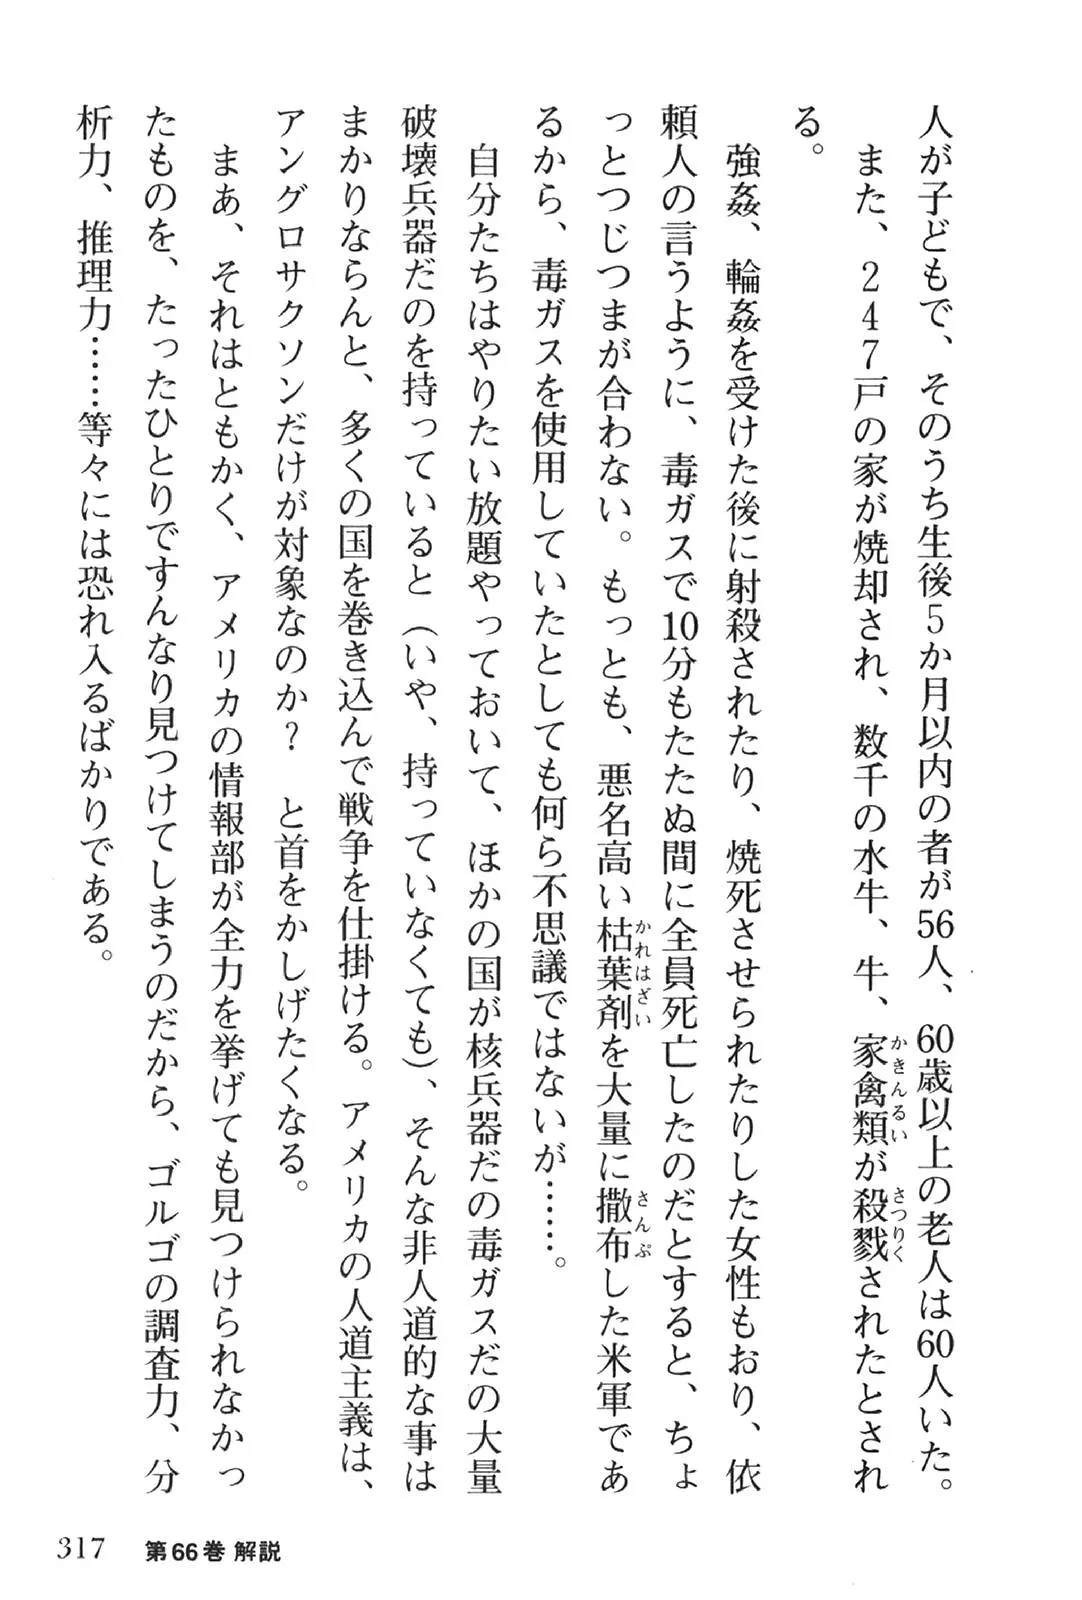 人が子どもで、そのうち生後5か月以内の者が56人、60歳以上の老人は60人いた。
また、247戸の家が焼却され、数千の水牛、牛、家禽類が殺戮されたとされ
かきんるい
さつりく
る。
強姦、輪姦を受けた後に射殺されたり、焼死させられたりした女性もおり、依
頼人の言うように、毒ガスで10分もたたぬ間に全員死亡したのだとすると、ちょ
っとつじつまが合わない。もっとも、悪名高い枯葉剤を大量に撒布した米軍であ
かれはざい
さんぷ
るから、毒ガスを使用していたとしても何ら不思議ではないが……。
自分たちはやりたい放題やっておいて、ほかの国が核兵器だの毒ガスだの大量
破壊兵器だのを持っていると（いや、持っていなくても）、そんな非人道的な事は
まかりならんと、多くの国を巻き込んで戦争を仕掛ける。アメリカの人道主義は、
アングロサクソンだけが対象なのか？　と首をかしげたくなる。
まあ、それはともかく、アメリカの情報部が全力を挙げても見つけられなかっ
たものを、たったひとりですんなり見つけてしまうのだから、ゴルゴの調査力、分
析力、推理力……等々には恐れ入るばかりである。
317 第66巻 解説